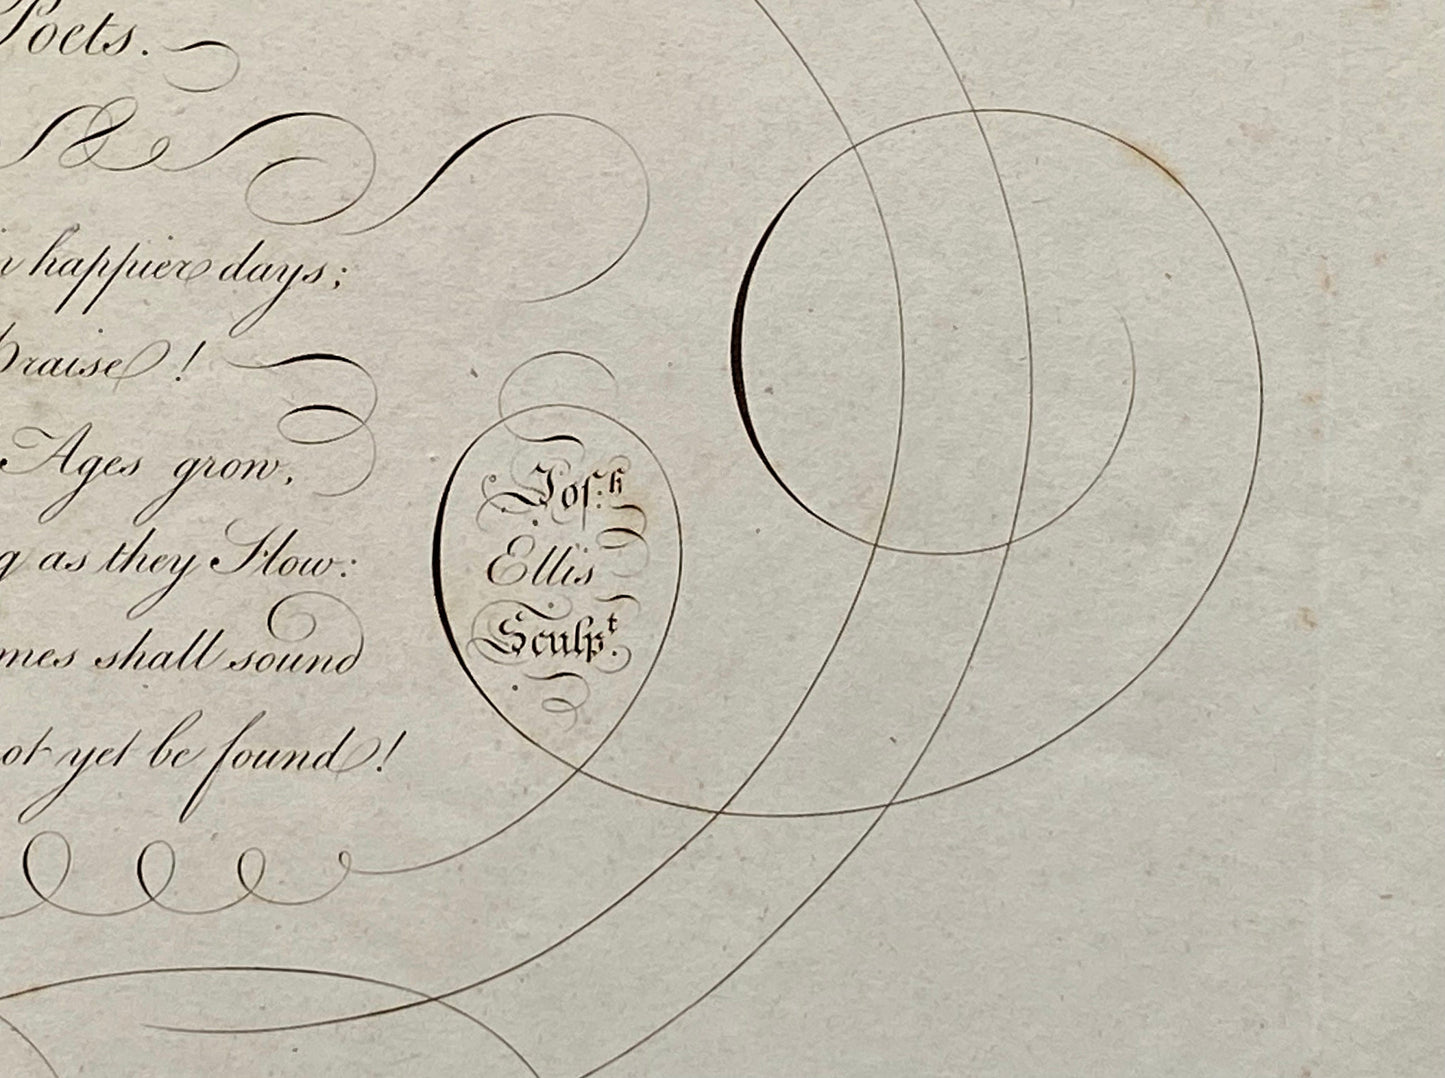 Poets.
&
happier days;
praise!
Ages grow,
as they Flow:
shall sound
yet be found!
Jos:h
Ellis
Sculpt.